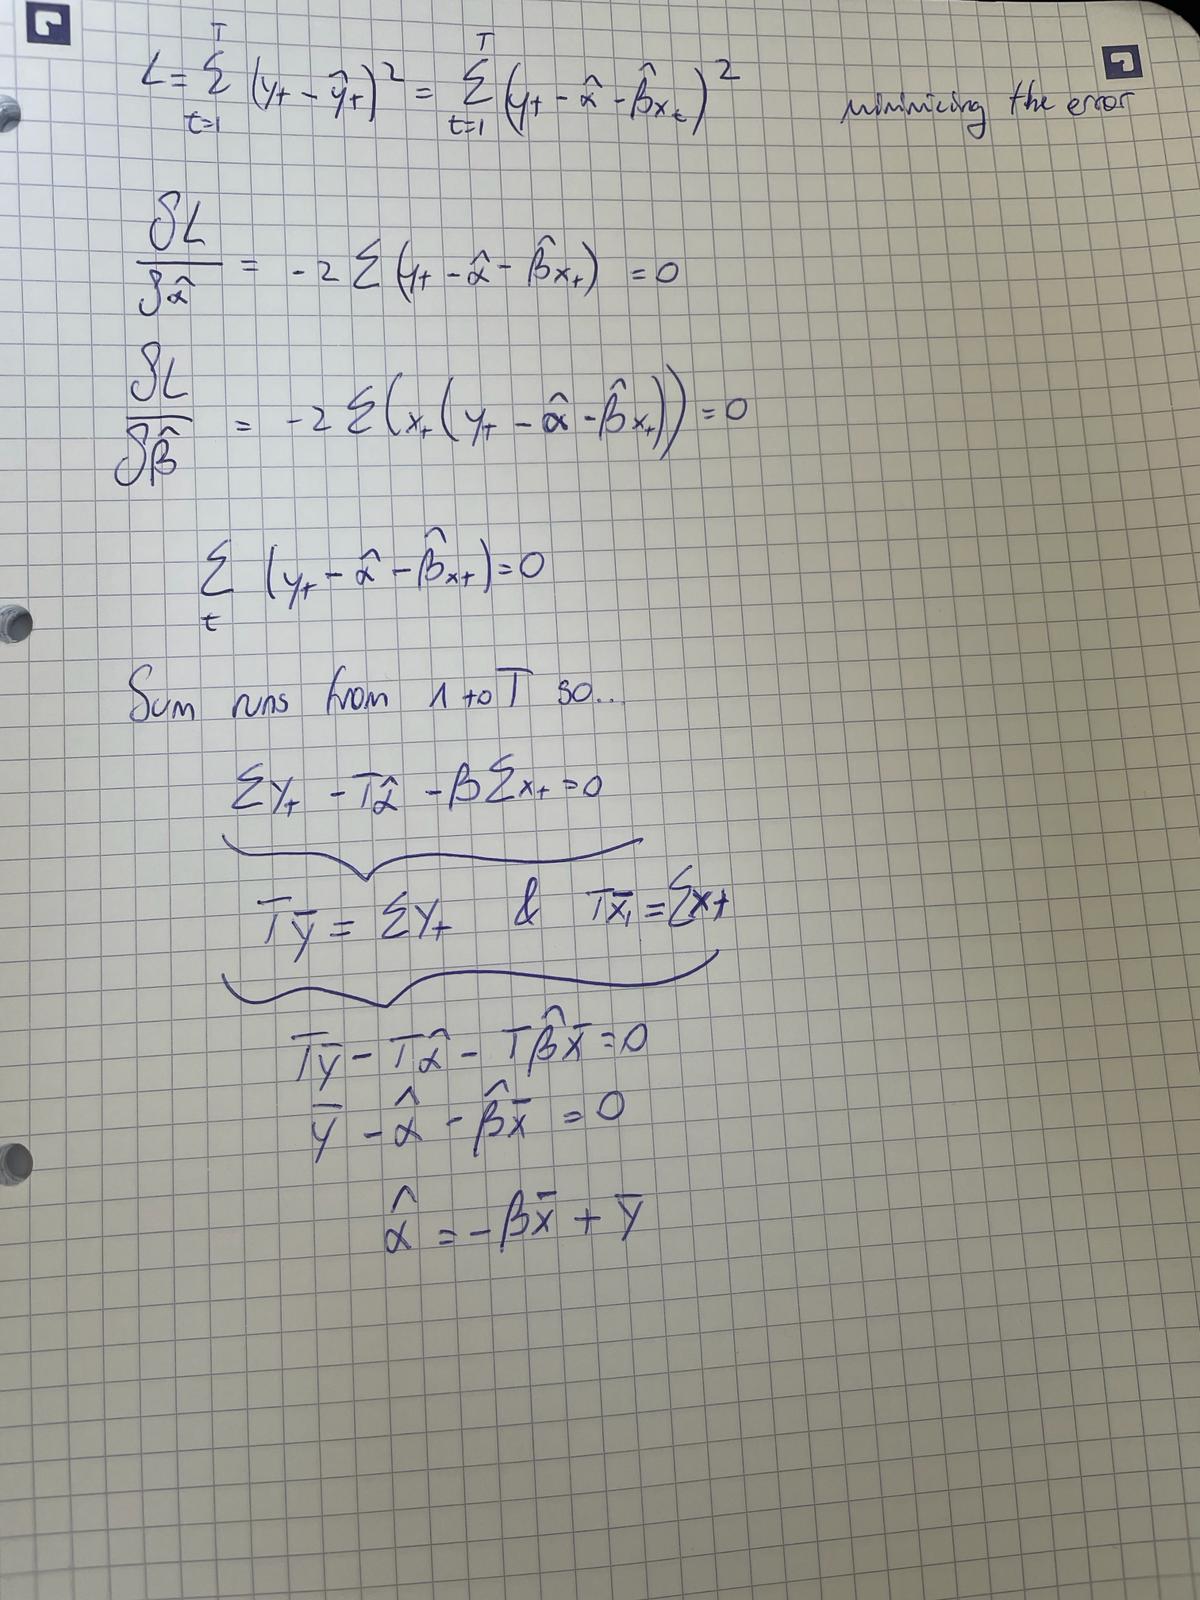 L = Σ_{t=1}^{T} (y_t - ŷ_t)² = Σ_{t=1}^{T} (y_t - α̂ - β̂x_t)² minimicing the error
δL/δα̂ = -2 Σ (y_t - α̂ - β̂x_t) = 0
δL/δβ̂ = -2 Σ (x_t (y_t - α̂ - β̂x_t)) = 0
Σ_t (y_t - α̂ - β̂x_t) = 0
Sum runs from 1 to T so...
Σy_t - Tα̂ - βΣx_t = 0
Tȳ = Σy_t & Tx̄_1 = Σx_t
Tȳ - Tα̂ - Tβ̂x̄ = 0
ȳ - α̂ - β̂x̄ = 0
α̂ = -βx̄ + ȳ